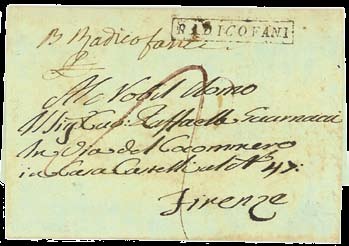 P. Radicofani.
RADICOFANI
All' Nobil Uomo
Il Sig: Cap: Raffaelle Guarnacci
In Via del Cocomero
in Casa Castelli al N° 47:
Firenze